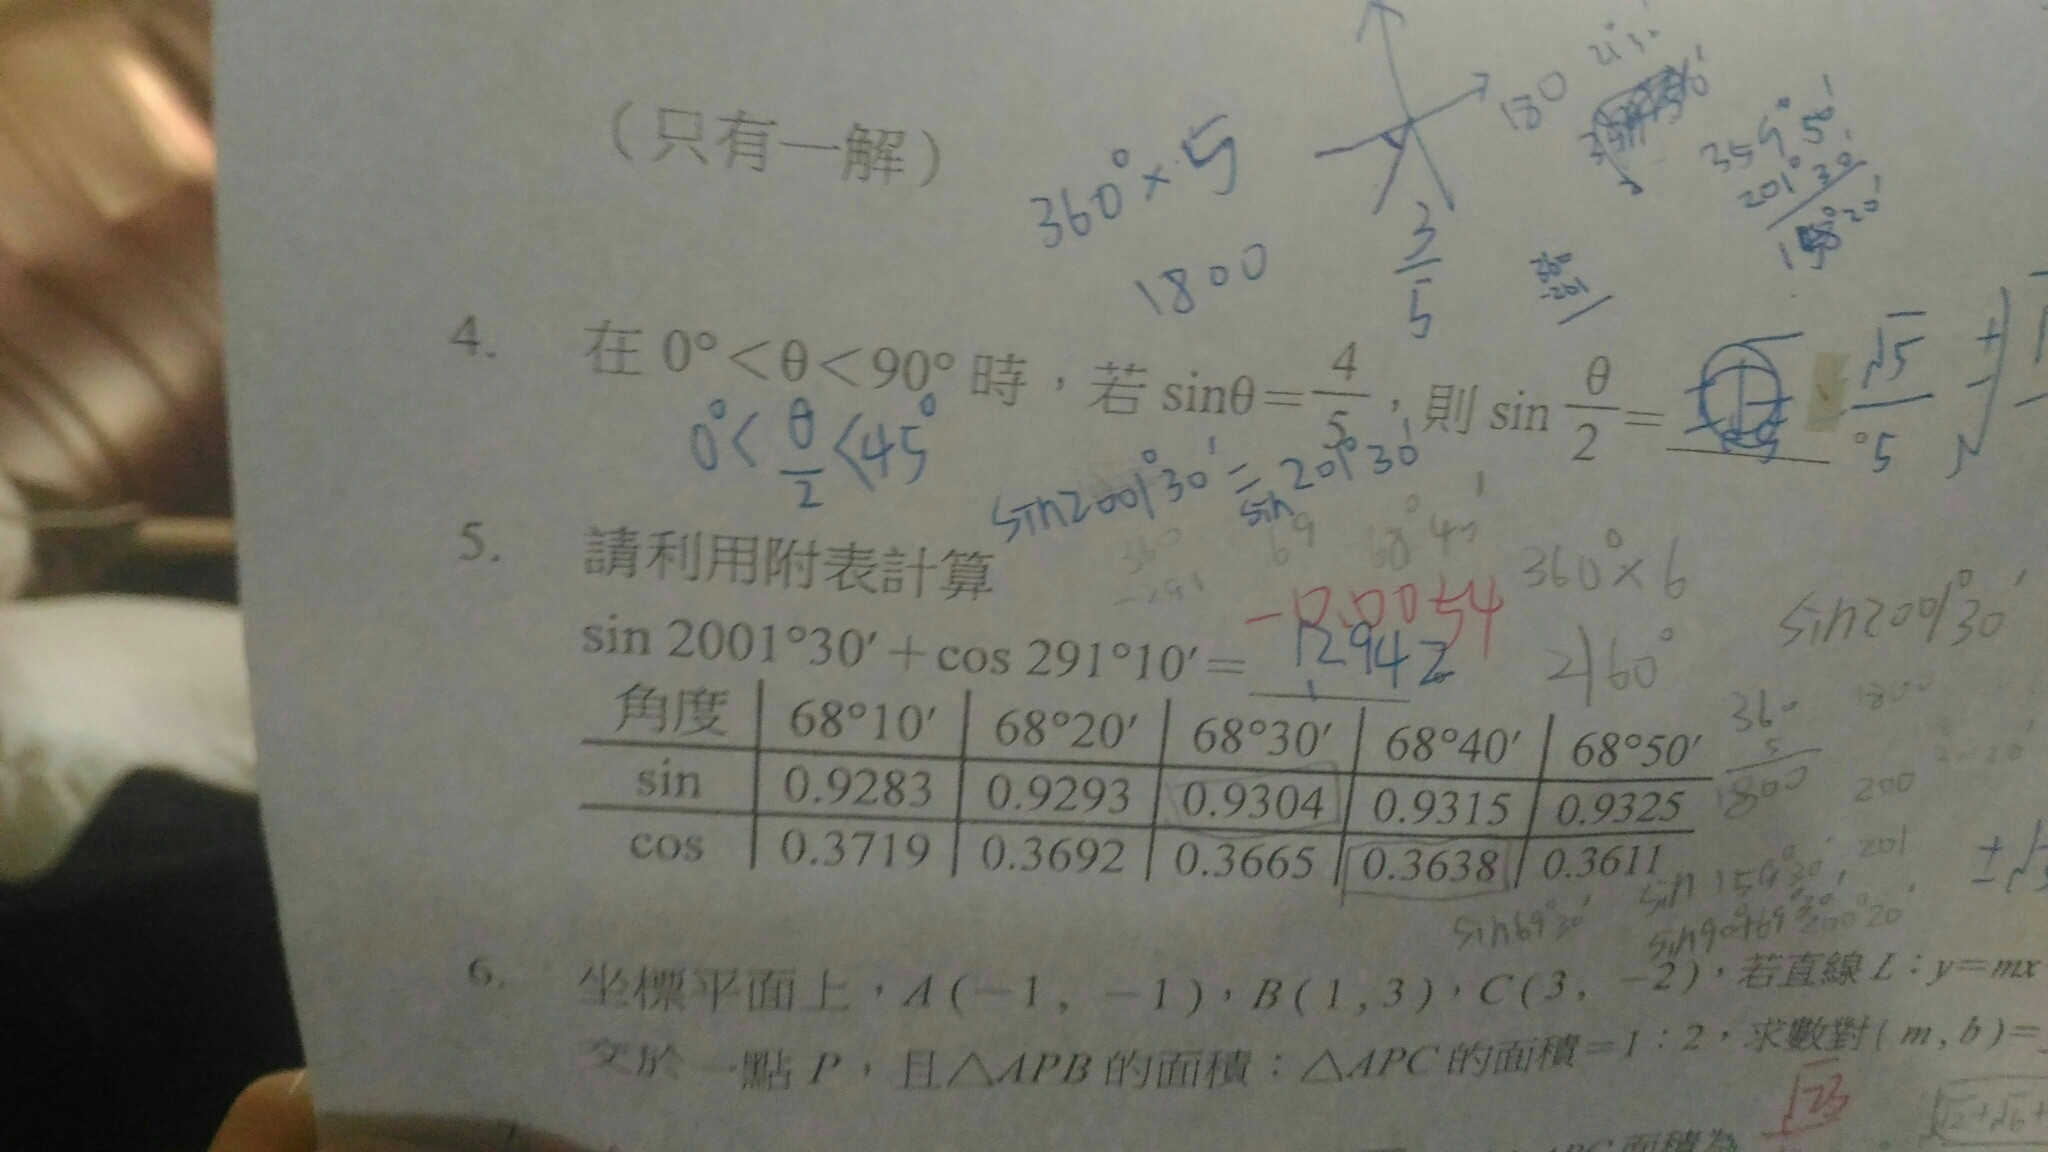 （只有一解）
360°×5
1800
3/5
180
359°50′
201°30′
4. 在 0°＜θ＜90° 時，若 sinθ=4/5，則 sin θ/2=
√5/5
0°<θ/2<45°
sin2001°30′=sin201°30′
5. 請利用附表計算
sin 2001°30′＋cos 291°10′=
-0.0054
1.2942
360°×6
2160°
sin2001°30′
角度 68°10′ 68°20′ 68°30′ 68°40′ 68°50′
sin 0.9283 0.9293 0.9304 0.9315 0.9325
cos 0.3719 0.3692 0.3665 0.3638 0.3611
360
5
1800
200
201
sin159°30′
sin69°30′
6. 坐標平面上，A(－1, －1)，B(1,3)，C(3, －2)，若直線 L：y=mx
交於一點 P，且△APB 的面積：△APC 的面積=1：2，求數對( m , b )=
√23